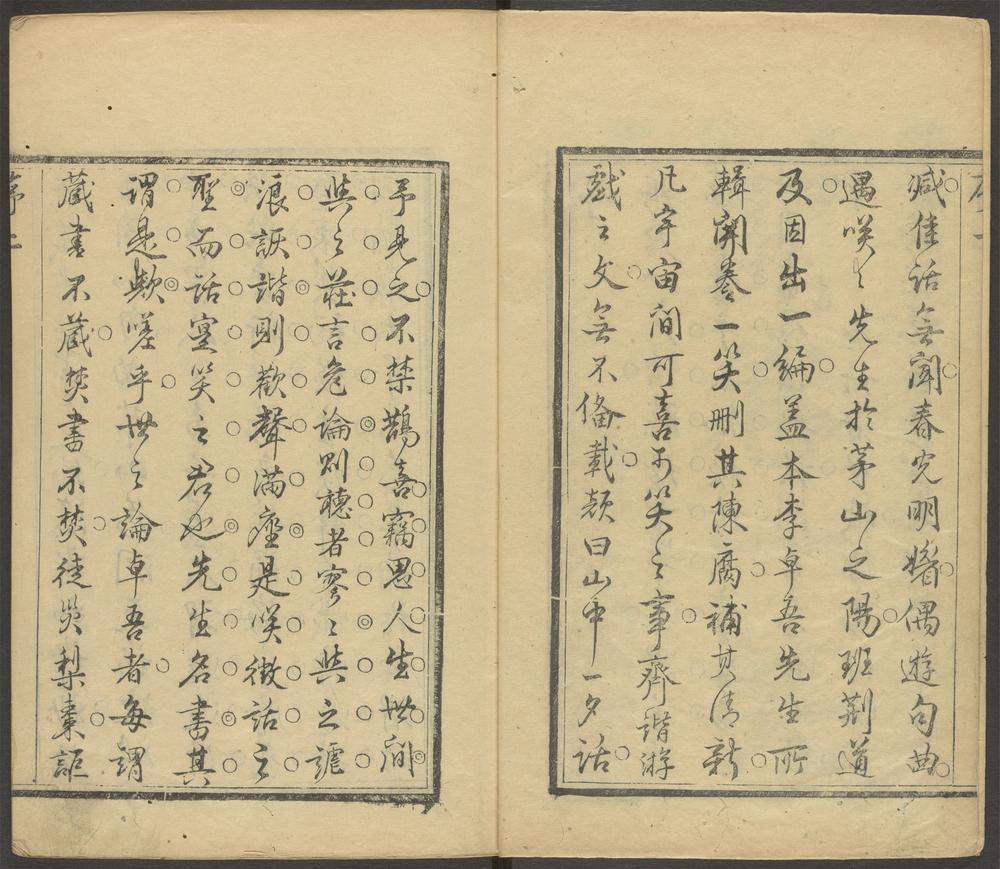 緘佳話無聞春光明媚偶遊句曲
遇咲々先生於茅山之陽班荆道
及因出一編盖本李卓吾先生所
輯開卷一笑删其陳腐補其清新
凡宇宙間可喜可笑之事齊諧游
戲之文無不偹載顔曰山中一夕話
予見之不禁鵲喜竊思人生世間
與之莊言危論則聽者寥々與之謔
浪詼諧則歡聲滿座是咲徴話之
聖而話寔笑之君也先生名書其
謂是歟嗟乎世之論卓吾者每謂
藏書不藏焚書不焚徒災梨棗詎
序二